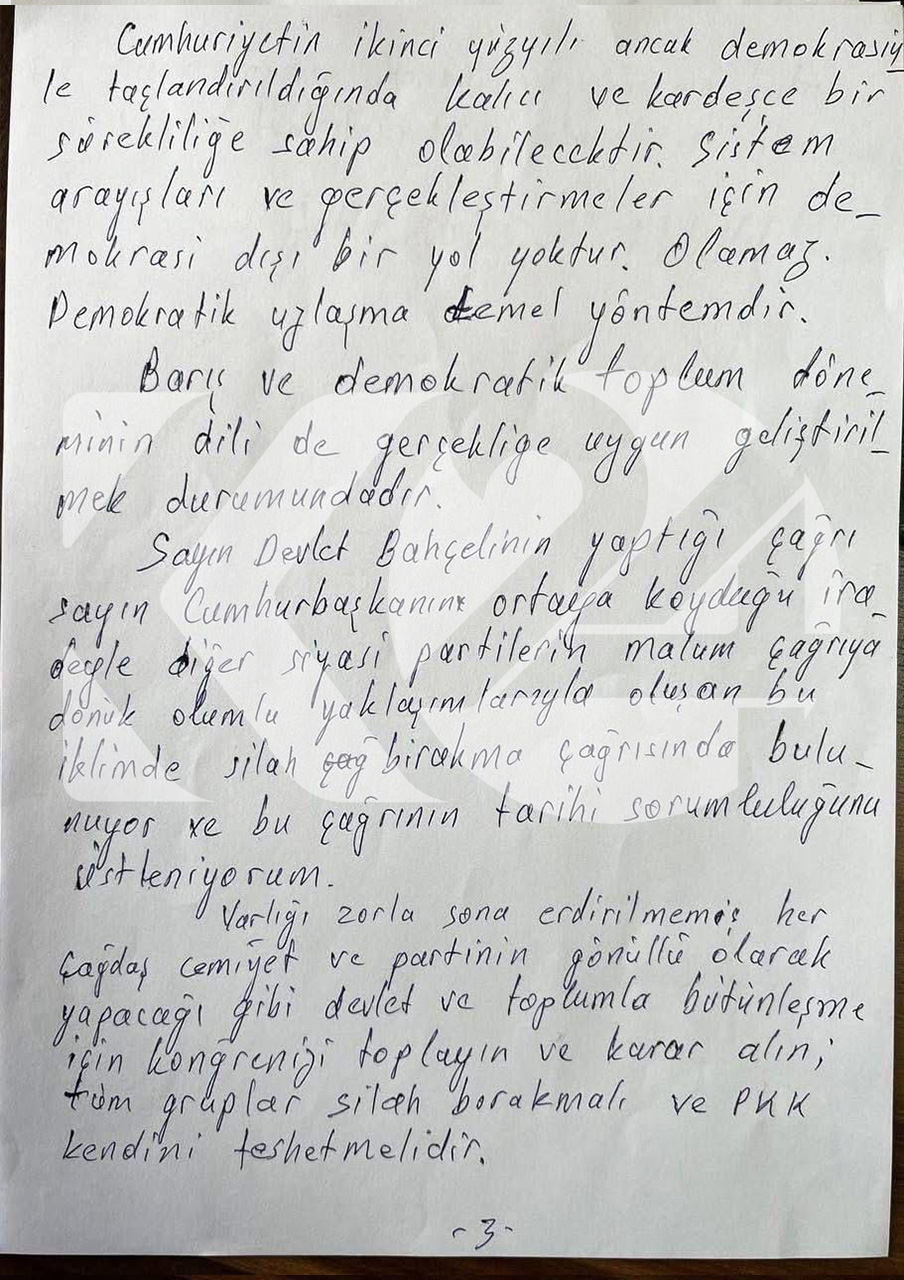 Cumhuriyetin ikinci yüzyılı ancak demokrasiy
le taçlandırıldığında kalıcı ve kardeşçe bir
sürekliliğe sahip olabilecektir. Sistem
arayışları ve gerçekleştirmeler için de_
mokrasi dışı bir yol yoktur. Olamaz.
Demokratik uzlaşma temel yöntemdir.
Barış ve demokratik toplum döne_
minin dili de gerçekliğe uygun geliştiril_
mek durumundadır.
Sayın Devlet Bahçelinin yaptığı çağrı
sayın Cumhurbaşkanını ortaya koyduğu ira_
deyle diğer siyasi partilerin malum çağrıya
dönük olumlu yaklaşımlarıyla oluşan bu
iklimde silah çağ bırakma çağrısında bulu_
nuyor ve bu çağrının tarihi sorumluluğunu
üstleniyorum.
Varlığı zorla sona erdirilmemiş her
çağdaş cemiyet ve partinin gönüllü olarak
yapacağı gibi devlet ve toplumla bütünleşme
için kongrenizi toplayın ve karar alın;
tüm gruplar silah bırakmalı ve PKK
kendini feshetmelidir.
-3-
K24